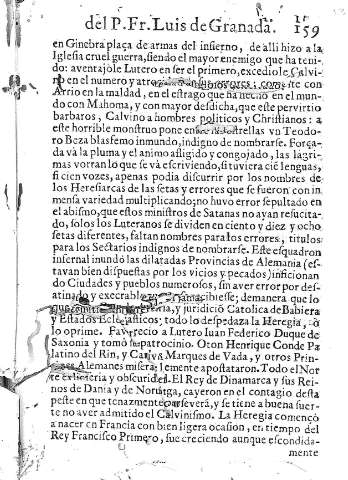 del P. Fr. Luis de Granada. 159
en Ginebra plaça de armas del infierno, de alli hizo a la
Iglesia cruel guerra, siendo el mayor enemigo que ha teni-
do: aventajòle Lutero en ser el primero, excediole Calvi-
no en el numero y errores; compite con
Arrio en la maldad, en el estrago que ha hecho en el mun-
do con Mahoma, y con mayor desdicha, que este pervirtio
barbaros, Calvino a hombres politicos y Christianos: a
este horrible monstruo pone entre las estrellas vn Teodo-
ro Beza blasfemo inmundo, indigno de nombrarse. Força-
da và la pluma y el animo afligido y congojado, las lagri-
mas vorran lo que se và escriviendo, si tuviera cie lenguas,
fi cien vozes, apenas podia discurrir por los nombres de
los Heresiarcas de las setas y errores que se fueron con in-
mensa variedad multiplicando; no huvo error sepultado en
el abismo, que estos ministros de Satanas no ayan resucita-
do, solos los Luteranos se dividen en ciento y diez y ocho
setas diferentes, faltan nombres para los errores, titulos
para los Sectarios indignos de nombrarse. Este esquadron
infernal inundò las dilatadas Provincias de Alemania (es-
tavan bien dispuestas por los vicios y pecados) inficionan
do Ciudades y pueblos numerosos, sin aver error por des-
atinado y execrable que no se admitiesse; demanera que lo
que juridició Catolica de Babiera
y Estados Eclesiasticos; todo lo despedaza la Heregia, o
lo oprime. Favorecio a Lutero Iuan Federico Duque de
Saxonia y tomò su patrocinio. Oton Henrique Conde Pa
latino del Rin, y Marques de Vada, y otros Prin-
cipes Alemanes miserablemente apostataron. Todo el Nor
te y obscuridad. El Rey de Dinamarca y sus Rei-
nos de Dania y de Noruega, cayeron en el contagio desta
peste en que tenazmente persevera, y se tiene a buena suer-
te no aver admitido el Calvinismo. La Heregia començò
a nacer en Francia con bien ligera ocasion, en tiempo del
Rey Francisco Primero, fue creciendo aunque escondida-
mente